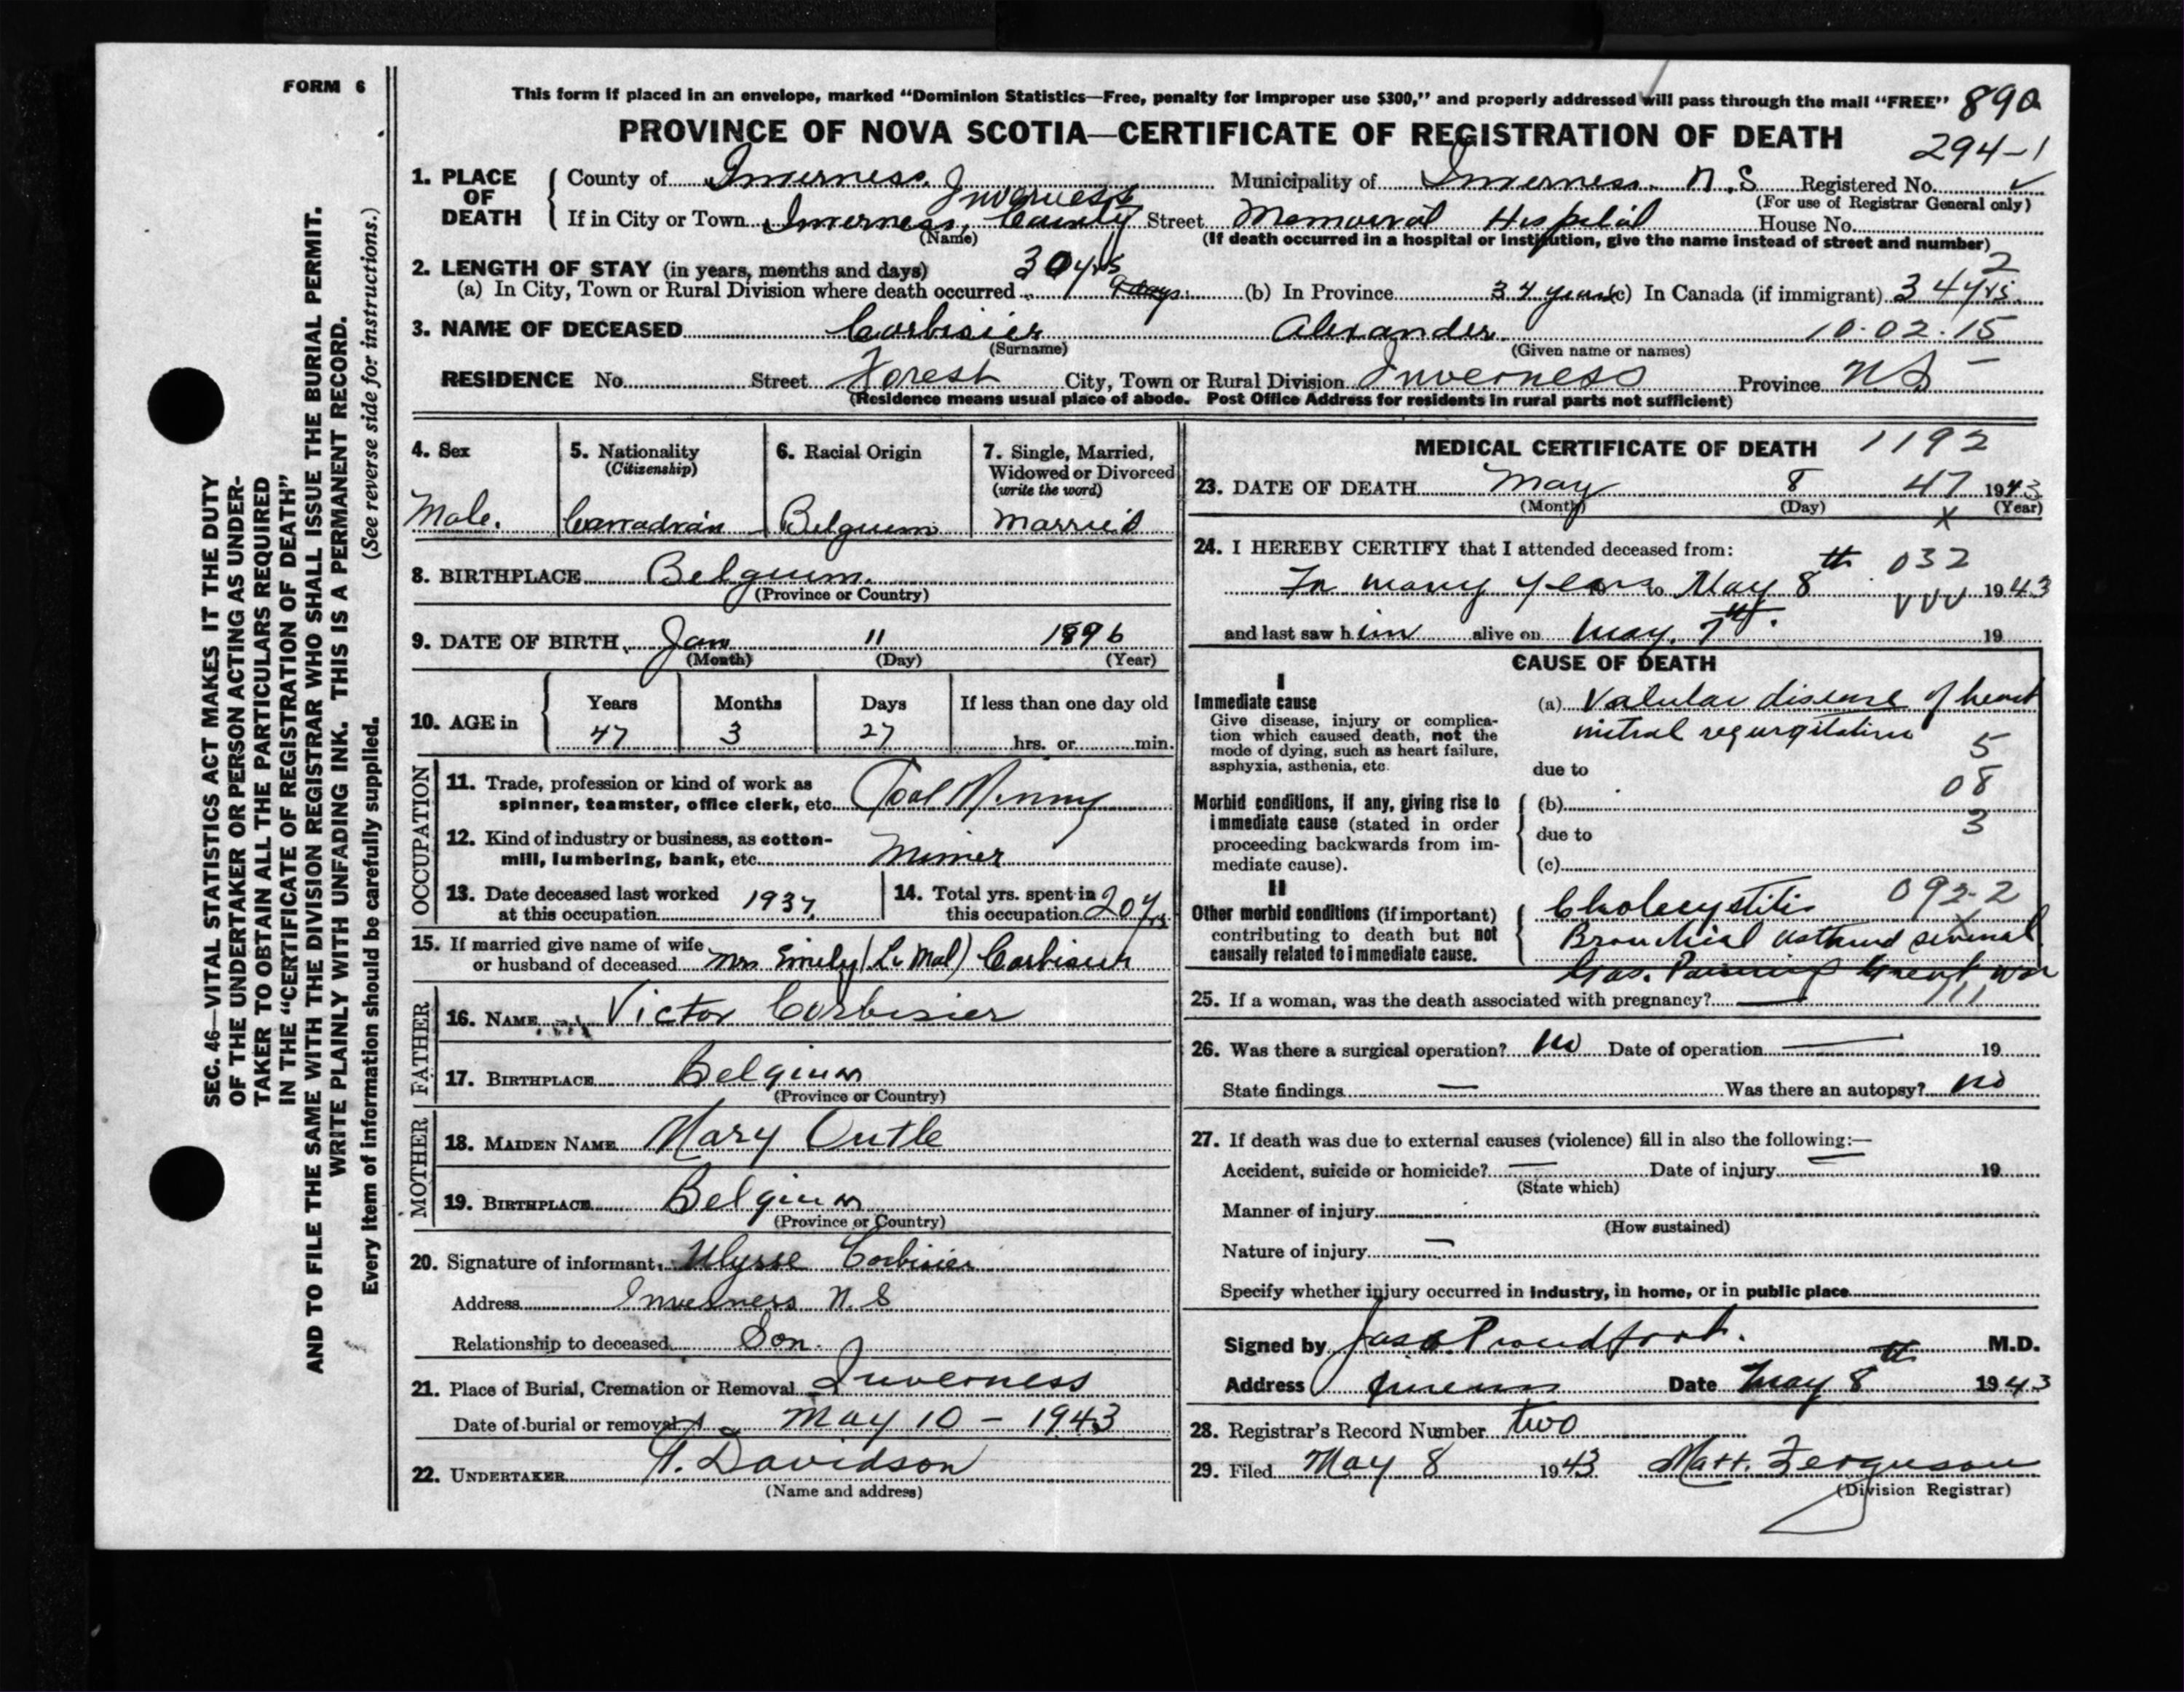 FORM 6
This form if placed in an envelope, marked "Dominion Statistics—Free, penalty for improper use $300," and properly addressed will pass through the mail "FREE" 890
PROVINCE OF NOVA SCOTIA—CERTIFICATE OF REGISTRATION OF DEATH
294-1
1. PLACE OF DEATH
County of Inverness Municipality of Inverness. N.S Registered No.
(For use of Registrar General only)
Inverness
If in City or Town Inverness, County Street Memorial Hospital House No.
(Name) (If death occurred in a hospital or institution, give the name instead of street and number)
2. LENGTH OF STAY (in years, months and days) 30 yrs 2
(a) In City, Town or Rural Division where death occurred 9 days (b) In Province 34 years (c) In Canada (if immigrant) 34 yrs.
3. NAME OF DECEASED Corbisier Alexander 10-02-15
(Surname) (Given name or names)
RESIDENCE No. Street Forest City, Town or Rural Division Inverness Province N.S
(Residence means usual place of abode. Post Office Address for residents in rural parts not sufficient)
4. Sex
Male.
5. Nationality
(Citizenship)
Canadian
6. Racial Origin
Belgium
7. Single, Married,
Widowed or Divorced
(write the word)
Married
8. BIRTHPLACE Belgium.
(Province or Country)
9. DATE OF BIRTH Jan 11 1896
(Month) (Day) (Year)
10. AGE in
Years Months Days If less than one day old
47 3 27 hrs. or min.
OCCUPATION
11. Trade, profession or kind of work as
spinner, teamster, office clerk, etc. Coal Mining
12. Kind of industry or business, as cotton-
mill, lumbering, bank, etc. Miner
13. Date deceased last worked
at this occupation 1937
14. Total yrs. spent in
this occupation 20 yrs
15. If married give name of wife
or husband of deceased Mrs Emily (Le Mal) Corbisier
FATHER
16. NAME Victor Corbisier
17. BIRTHPLACE Belgium
(Province or Country)
MOTHER
18. MAIDEN NAME Mary Outle
19. BIRTHPLACE Belgium
(Province or Country)
20. Signature of informant Ulysse Corbisier
Address Inverness N.S
Relationship to deceased Son.
21. Place of Burial, Cremation or Removal Inverness
Date of burial or removal May 10 - 1943
22. UNDERTAKER Davidson
(Name and address)
MEDICAL CERTIFICATE OF DEATH 1192
23. DATE OF DEATH May 8 47 1943
(Month) (Day) x (Year)
24. I HEREBY CERTIFY that I attended deceased from: 032
In many years to May 8th 1943
and last saw him alive on May 7th. 19
CAUSE OF DEATH
I
Immediate cause
Give disease, injury or complica-
tion which caused death, not the
mode of dying, such as heart failure,
asphyxia, asthenia, etc.
(a) Valvular disease of heart
mitral regurgitation
5
due to
08
Morbid conditions, if any, giving rise to
immediate cause (stated in order
proceeding backwards from im-
mediate cause).
(b)
due to 3
(c)
II
Other morbid conditions (if important)
contributing to death but not
causally related to immediate cause.
Cholecystitis 092-2
Bronchial asthma
Gas. Great war
25. If a woman, was the death associated with pregnancy? —
26. Was there a surgical operation? no Date of operation — 19
State findings — Was there an autopsy? no
27. If death was due to external causes (violence) fill in also the following:—
Accident, suicide or homicide? — Date of injury — 19
(State which)
Manner of injury
(How sustained)
Nature of injury —
Specify whether injury occurred in industry, in home, or in public place
Signed by Jas. Proudfoot. M.D.
Address Date May 8th 1943
28. Registrar's Record Number two
29. Filed May 8 1943 Matt. Ferguson
(Division Registrar)
SEC. 46—VITAL STATISTICS ACT MAKES IT THE DUTY
OF THE UNDERTAKER OR PERSON ACTING AS UNDER-
TAKER TO OBTAIN ALL THE PARTICULARS REQUIRED
IN THE "CERTIFICATE OF REGISTRATION OF DEATH"
AND TO FILE THE SAME WITH THE DIVISION REGISTRAR WHO SHALL ISSUE THE BURIAL PERMIT.
WRITE PLAINLY WITH UNFADING INK. THIS IS A PERMANENT RECORD.
Every item of information should be carefully supplied. (See reverse side for instructions.)